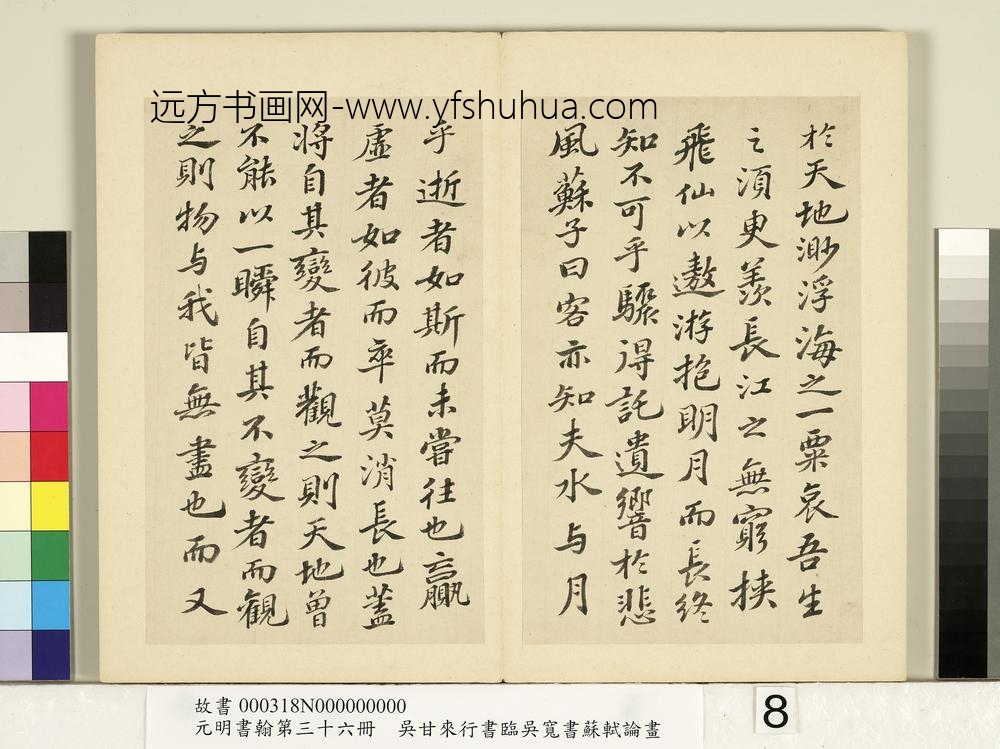 远方书画网-www.yfshuhua.com
於天地渺浮海之一粟哀吾生
之須臾羨長江之無窮挟
飛仙以遨游抱明月而長终
知不可乎驟得託遺響於悲
風蘇子曰客亦知夫水与月
乎逝者如斯而未嘗往也贏
虛者如彼而卒莫消長也蓋
將自其變者而觀之則天地曾
不能以一瞬自其不變者而觀
之則物与我皆無盡也而又
故書 000318N000000000
元明書翰第三十六冊 吳甘來行書臨吳寬書蘇軾論畫
8